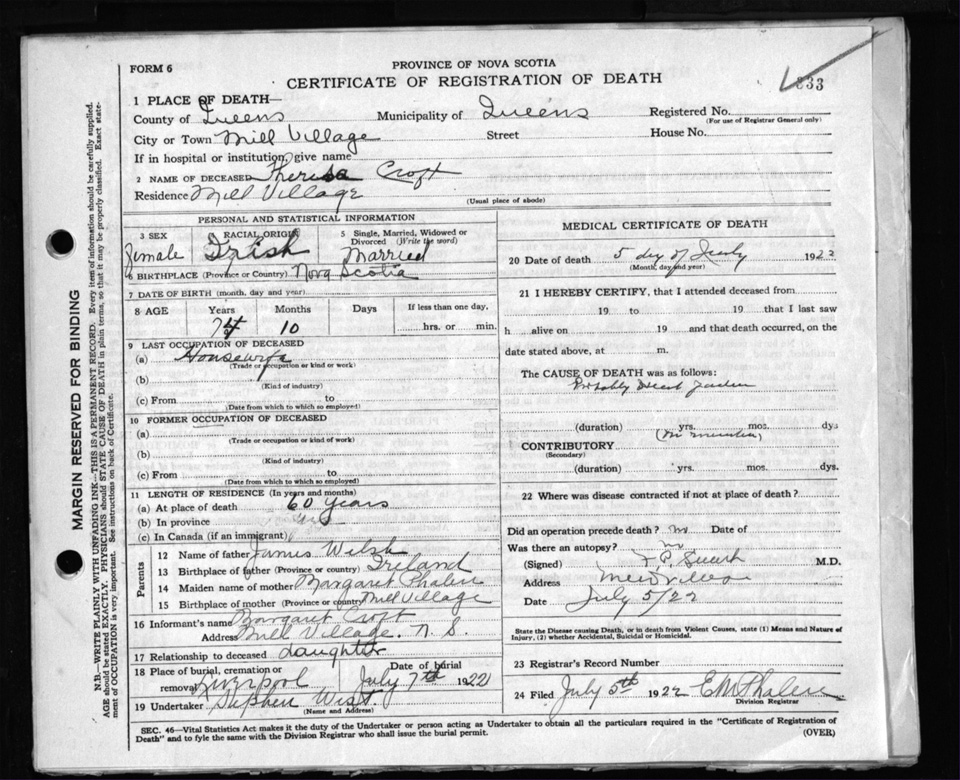 FORM 6
PROVINCE OF NOVA SCOTIA
CERTIFICATE OF REGISTRATION OF DEATH
833
1 PLACE OF DEATH—
County of Queens Municipality of Queens Registered No.
(For use of Registrar General only)
City or Town Mill Village Street House No.
If in hospital or institution, give name
2 NAME OF DECEASED Theresa Croft
Residence Mill Village
(Usual place of abode)
PERSONAL AND STATISTICAL INFORMATION
3 SEX RACIAL ORIGIN 5 Single, Married, Widowed or Divorced (Write the word)
Female Irish Married
6 BIRTHPLACE (Province or Country) Nova Scotia
7 DATE OF BIRTH (month, day and year)
8 AGE Years Months Days If less than one day,
74 10 hrs. or min.
9 LAST OCCUPATION OF DECEASED
(a) Housewife
(Trade or occupation or kind or work)
(b)
(Kind of industry)
(c) From to
(Date from which to which so employed)
10 FORMER OCCUPATION OF DECEASED
(a)
(Trade or occupation or kind of work)
(b)
(Kind of industry)
(c) From to
(Date from which to which so employed)
11 LENGTH OF RESIDENCE (In years and months)
(a) At place of death 60 years
(b) In province
(c) In Canada (if an immigrant)
Parents
12 Name of father James Welsh
13 Birthplace of father (Province or country) Ireland
14 Maiden name of mother Margaret Phalen
15 Birthplace of mother (Province or country) Mill Village
16 Informant's name Margaret Croft
Address Mill Village. N. S.
17 Relationship to deceased daughter
18 Place of burial, cremation or removal Liverpool Date of burial July 7th 1922
19 Undertaker Stephen West.
(Name and Address)
MEDICAL CERTIFICATE OF DEATH
20 Date of death 5 day of July 1922
(Month, day and year)
21 I HEREBY CERTIFY, that I attended deceased from
19 to 19 that I last saw
h alive on 19 and that death occurred, on the
date stated above, at m.
The CAUSE OF DEATH was as follows:
Probably Heart
(duration) yrs. mos. dys
CONTRIBUTORY
(Secondary)
(duration) yrs. mos. dys.
22 Where was disease contracted if not at place of death?
Did an operation precede death? no Date of
Was there an autopsy? no
(Signed) M.D.
Address Mill Village
Date July 5/22
State the Disease causing Death, or in death from Violent Causes, state (1) Means and Nature of
Injury, (2) whether Accidental, Suicidal or Homicidal.
23 Registrar's Record Number
24 Filed July 5th 1922 E M Phalen
Division Registrar
SEC. 46—Vital Statistics Act makes it the duty of the Undertaker or person acting as Undertaker to obtain all the particulars required in the "Certificate of Registration of
Death" and to fyle the same with the Division Registrar who shall issue the burial permit.
(OVER)
MARGIN RESERVED FOR BINDING
N.B.—WRITE PLAINLY WITH UNFADING INK—THIS IS A PERMANENT RECORD. Every item of information should be carefully supplied.
AGE should be stated EXACTLY. PHYSICIANS should STATE CAUSE OF DEATH in plain terms, so that it may be properly classified. Exact state-
ment of OCCUPATION is very important. See instructions on back of Certificate.